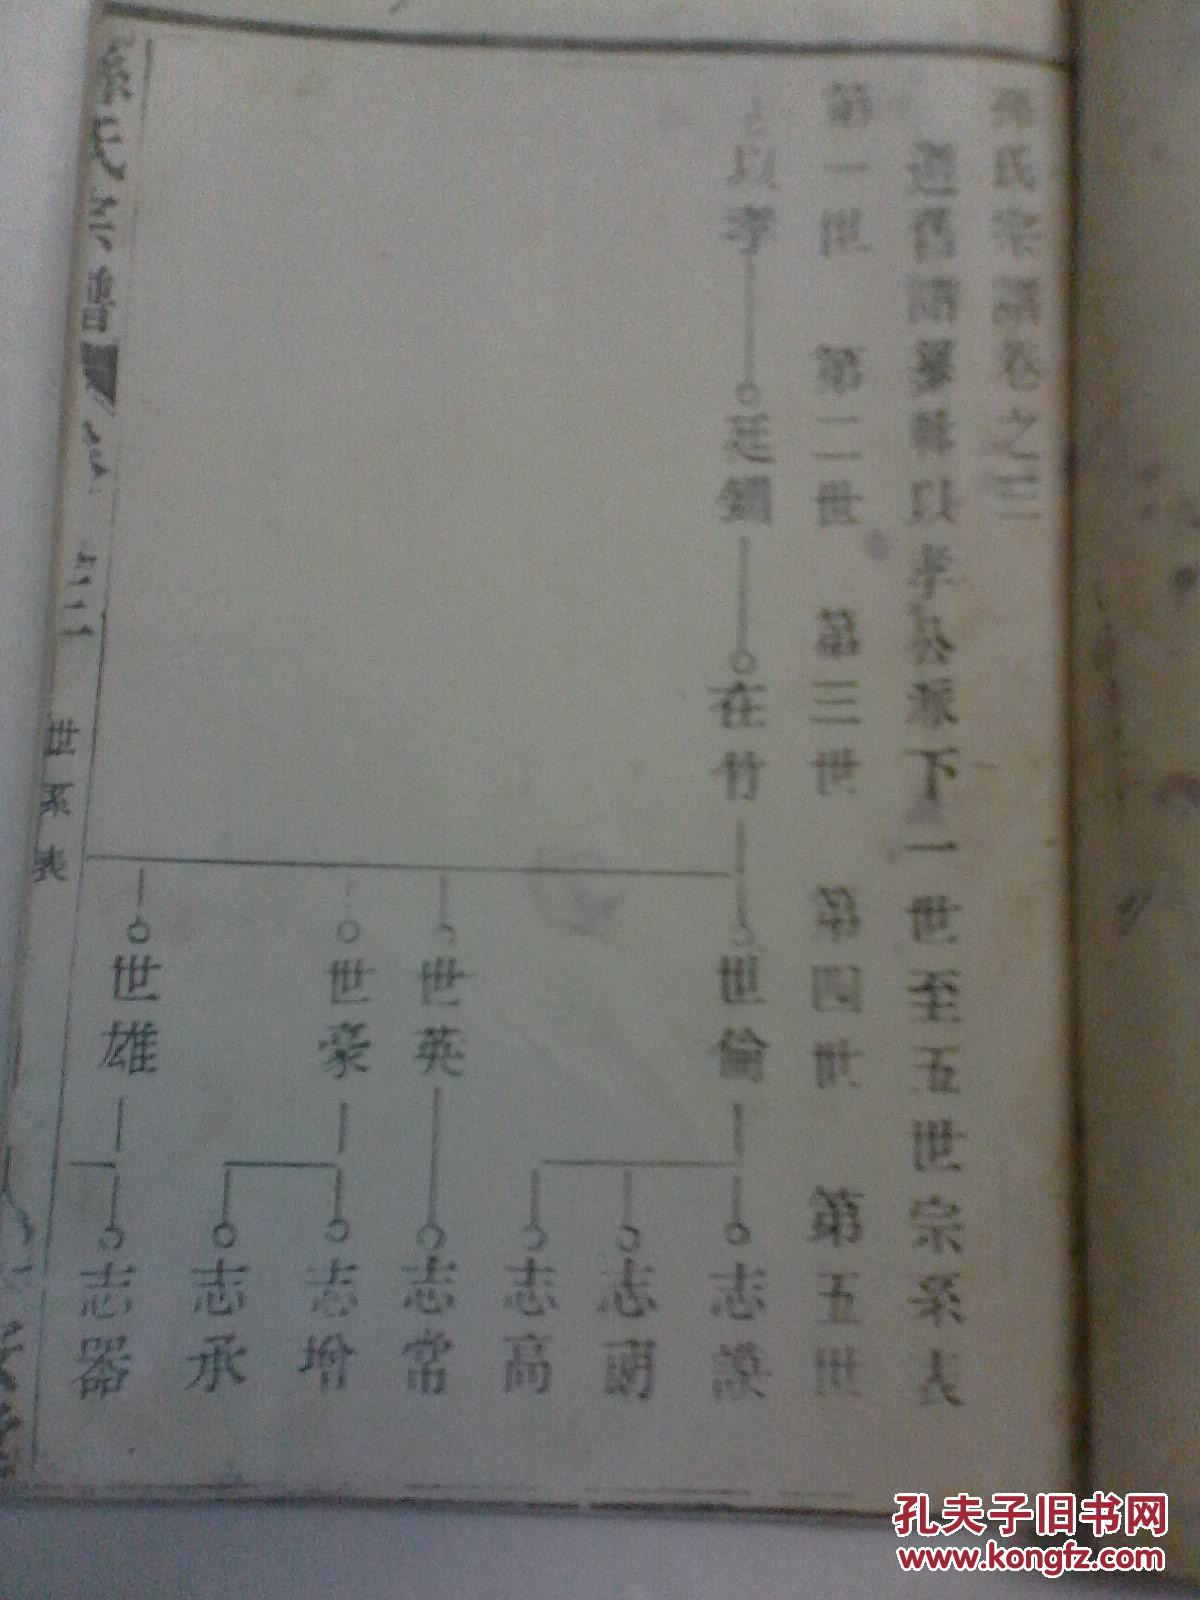 孫氏宗譜卷之三
遵舊譜纂修以孝公派下一世至五世宗系表
第一世 第二世 第三世 第四世 第五世
以孝 廷 在竹 世倫 志
志
志高
世英 志常
世豪 志增
志承
世雄 志器
孫氏宗譜 卷 三 二 世系表
孔夫子旧书网
www.kongfz.com